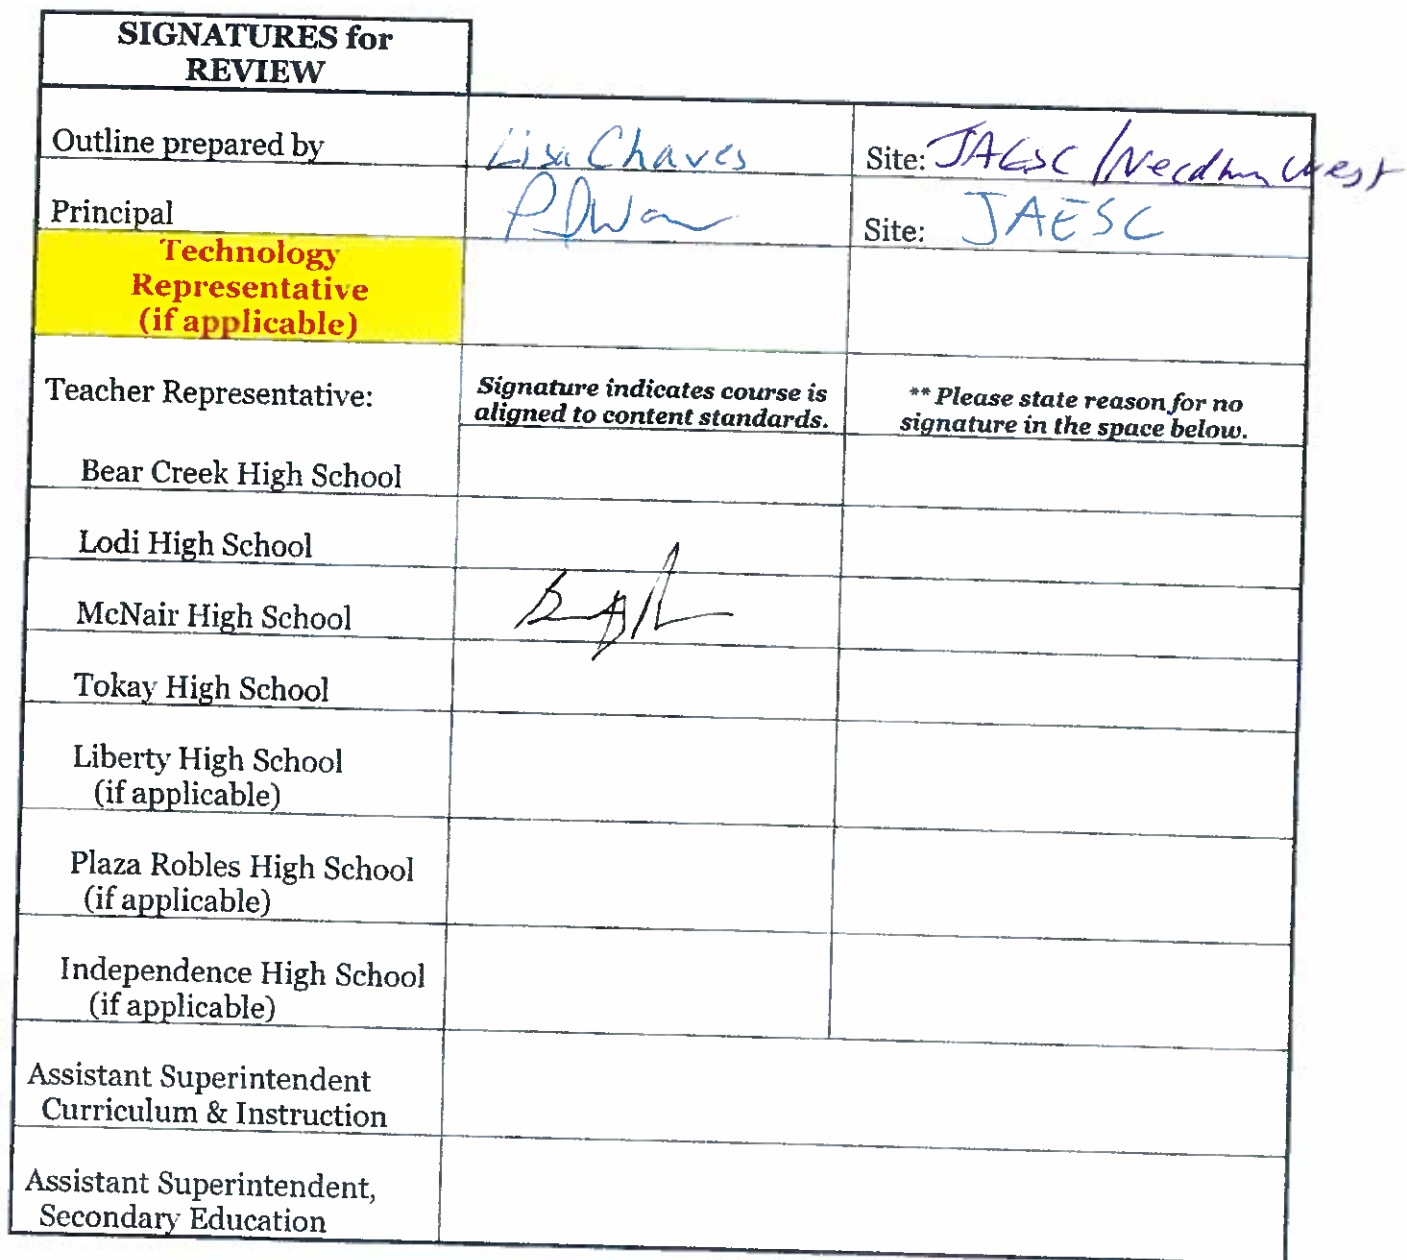 SIGNATURES for
REVIEW
Outline prepared by Lisa Chaves Site: JAESC / Needham West
Principal Site: JAESC
Technology
Representative
(if applicable)
Teacher Representative:
Signature indicates course is
aligned to content standards.
** Please state reason for no
signature in the space below.
Bear Creek High School
Lodi High School
McNair High School
Tokay High School
Liberty High School
(if applicable)
Plaza Robles High School
(if applicable)
Independence High School
(if applicable)
Assistant Superintendent
Curriculum & Instruction
Assistant Superintendent,
Secondary Education